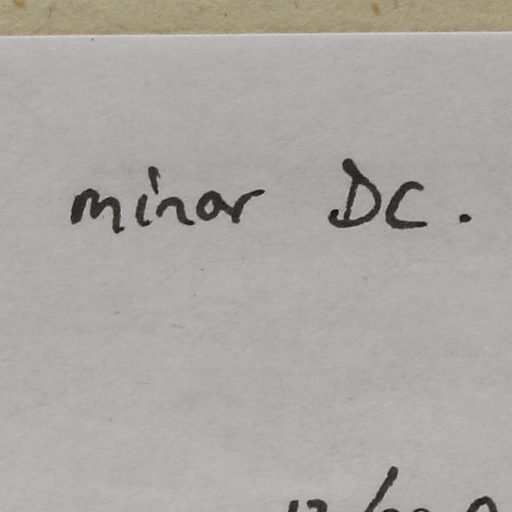 minor DC.